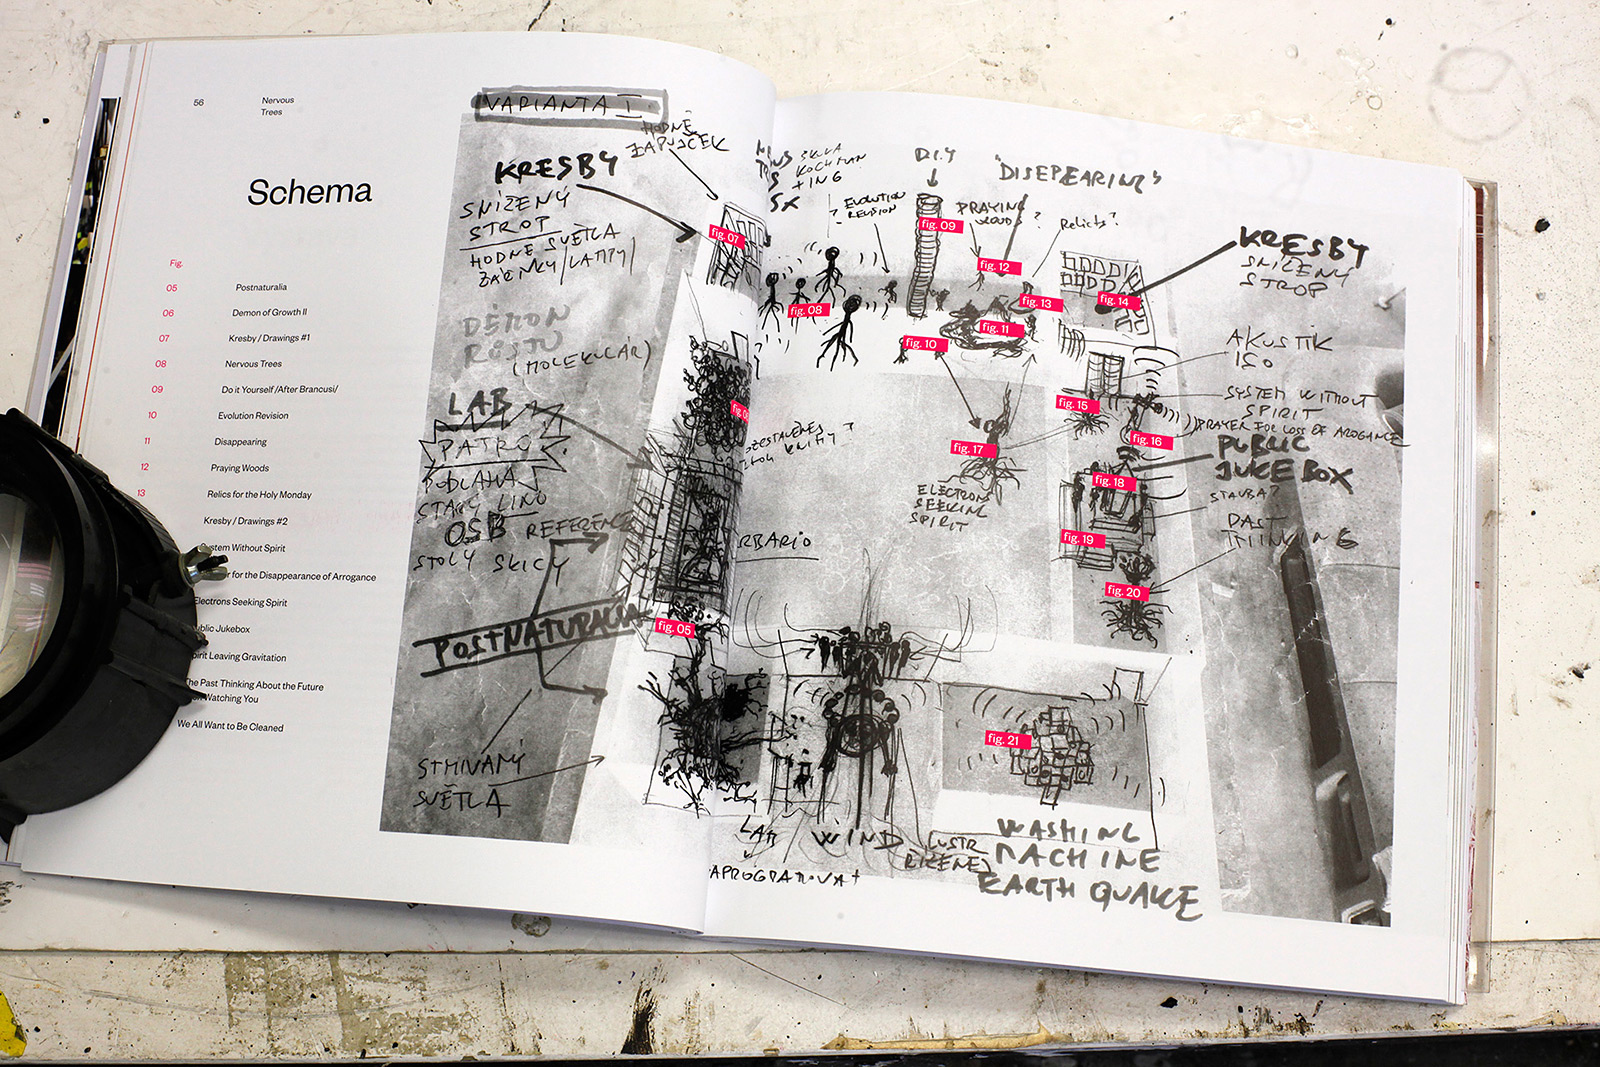 56
Nervous
Trees
Schema
Fig.
05 Postnaturalia
06 Demon of Growth II
07 Kresby / Drawings #1
08 Nervous Trees
09 Do it Yourself /After Brancusi/
10 Evolution Revision
11 Disappearing
12 Praying Woods
13 Relics for the Holy Monday
Kresby / Drawings #2
System Without Spirit
for the Disappearance of Arrogance
Electrons Seeking Spirit
Public Jukebox
Spirit Leaving Gravitation
The Past Thinking About the Future
Watching You
We All Want to Be Cleaned
VARIANTA I
HODNĚ
ZAPUJČEK
KRESBY
SNÍŽENÝ
STROP
HODNĚ SVĚTLA
ŽÁROVKY/LAMPY/
DÉMON
RŮSTU
(MOLEKULÁR)
LAB
PATRO
PODLAHA
STARÝ LINO
OSB REFERENCE
STOLY SKICY
POSTNATURALIA
STMIVANÝ
SVĚTLA
EVOLUTION
REVISION
D.I.Y
"DISEPEARING"
PRAYING
WOODS?
Relicts?
KRESBY
SNÍŽENÝ
STROP
AKUSTIK
ISO
SYSTEM WITHOUT
SPIRIT
PRAYER FOR LOSS OF AROGANCE
PUBLIC
JUKE BOX
STAVBA?
PAST
THINKING
ELECTRONS
SEEKING
SPIRIT
RBARIO
LAB
WIND
WASHING
MACHINE
EARTH QUAKE
fig. 07
fig. 08
fig. 09
fig. 12
fig. 13
fig. 11
fig. 10
fig. 14
fig. 15
fig. 16
fig. 17
fig. 18
fig. 19
fig. 20
fig. 05
fig. 21